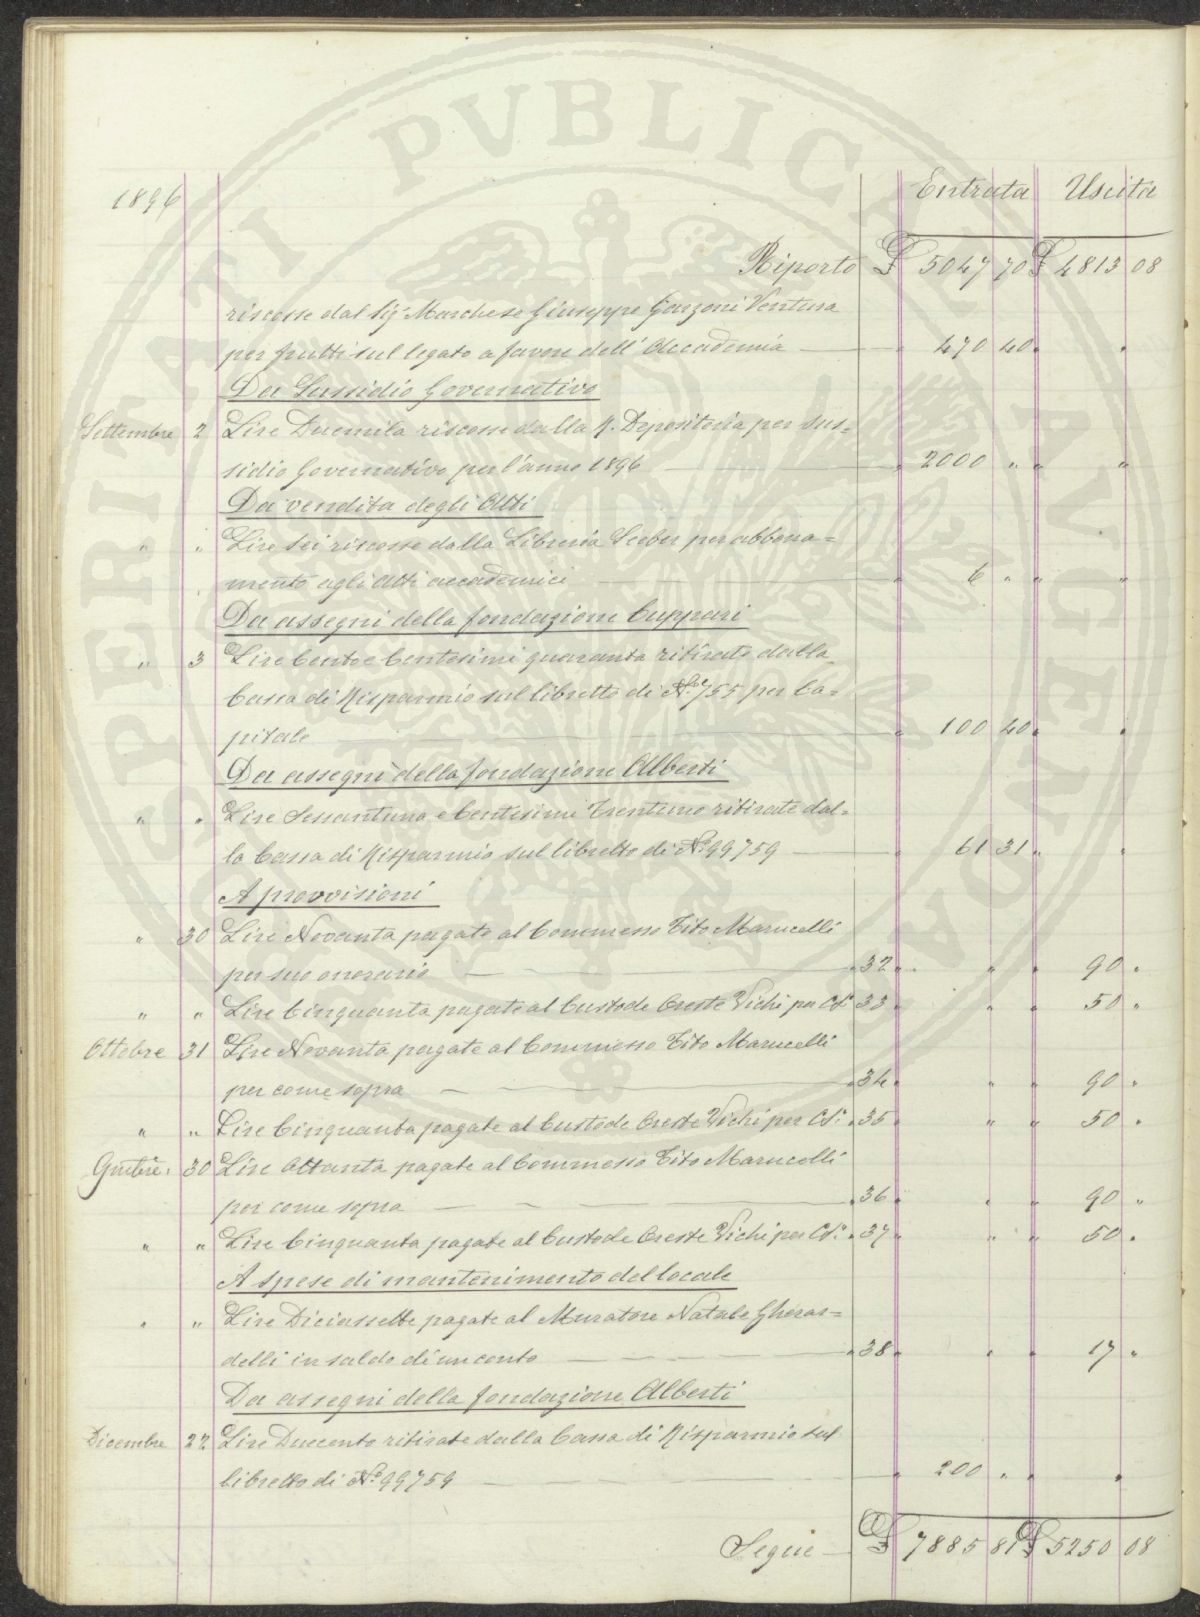 1896 Entrata Uscita
Riporto £ 5047 70 £ 4813 08
riscosse dal Sig. Marchese Giuseppe Garzoni Ventura
per frutti sul legato a favore dell' Accademia — 470 40 " "
Da Sussidio Governativo
Settembre 2 Lire Duemila riscosse dalla R. Depositeria per sus=
sidio Governativo per l'anno 1896 — " 2000 " " "
Da vendita degli Atti
" " Lire Sei riscosse dalla Libreria Seeber per abbona=
mento agli Atti accademici — " 6 " " "
Da assegni della fondazione Cuppari
" 3 Lire Cento e Centesimi quaranta ritirate dalla
Cassa di Risparmio sul libretto di N.° 755 per Ca=
pitale — " 100 40 " "
Da assegni della fondazione Alberti
" " Lire Sessantuna e Centesimi Trentuno ritirate dal=
la Cassa di Risparmio sul libretto di N.° 99759 — " 61 31 " "
A provvisioni
" 30 Lire Novanta pagate al Commesso Tito Marucelli
per suo onorario — " 32 " " " 90 "
" " Lire Cinquanta pagate al Custode Oreste Vichi per Cs. 33 " " " 50 "
Ottobre 31 Lire Novanta pagate al Commesso Tito Marucelli
per come sopra — " 34 " " " 90 "
" " Lire Cinquanta pagate al Custode Oreste Vichi per Cs. " 35 " " " 50 "
Gmbre. 30 Lire Ottanta pagate al Commesso Tito Marucelli
per come sopra — " 36 " " " 90 "
" " Lire Cinquanta pagate al Custode Oreste Vichi per Cs. " 37 " " " 50 "
A spese di mantenimento del locale
" " Lire Diciassette pagate al Muratore Natale Gherar=
delli in saldo di un conto — " 38 " " " 17 "
Da assegni della fondazione Alberti
Dicembre 22 Lire Duecento ritirate dalla Cassa di Risparmio sul
libretto di N.° 99759 — " 200 " " "
Segue — £ 7885 81 £ 5250 08
PROSPERITATI PVBLICAE AVGENDAE